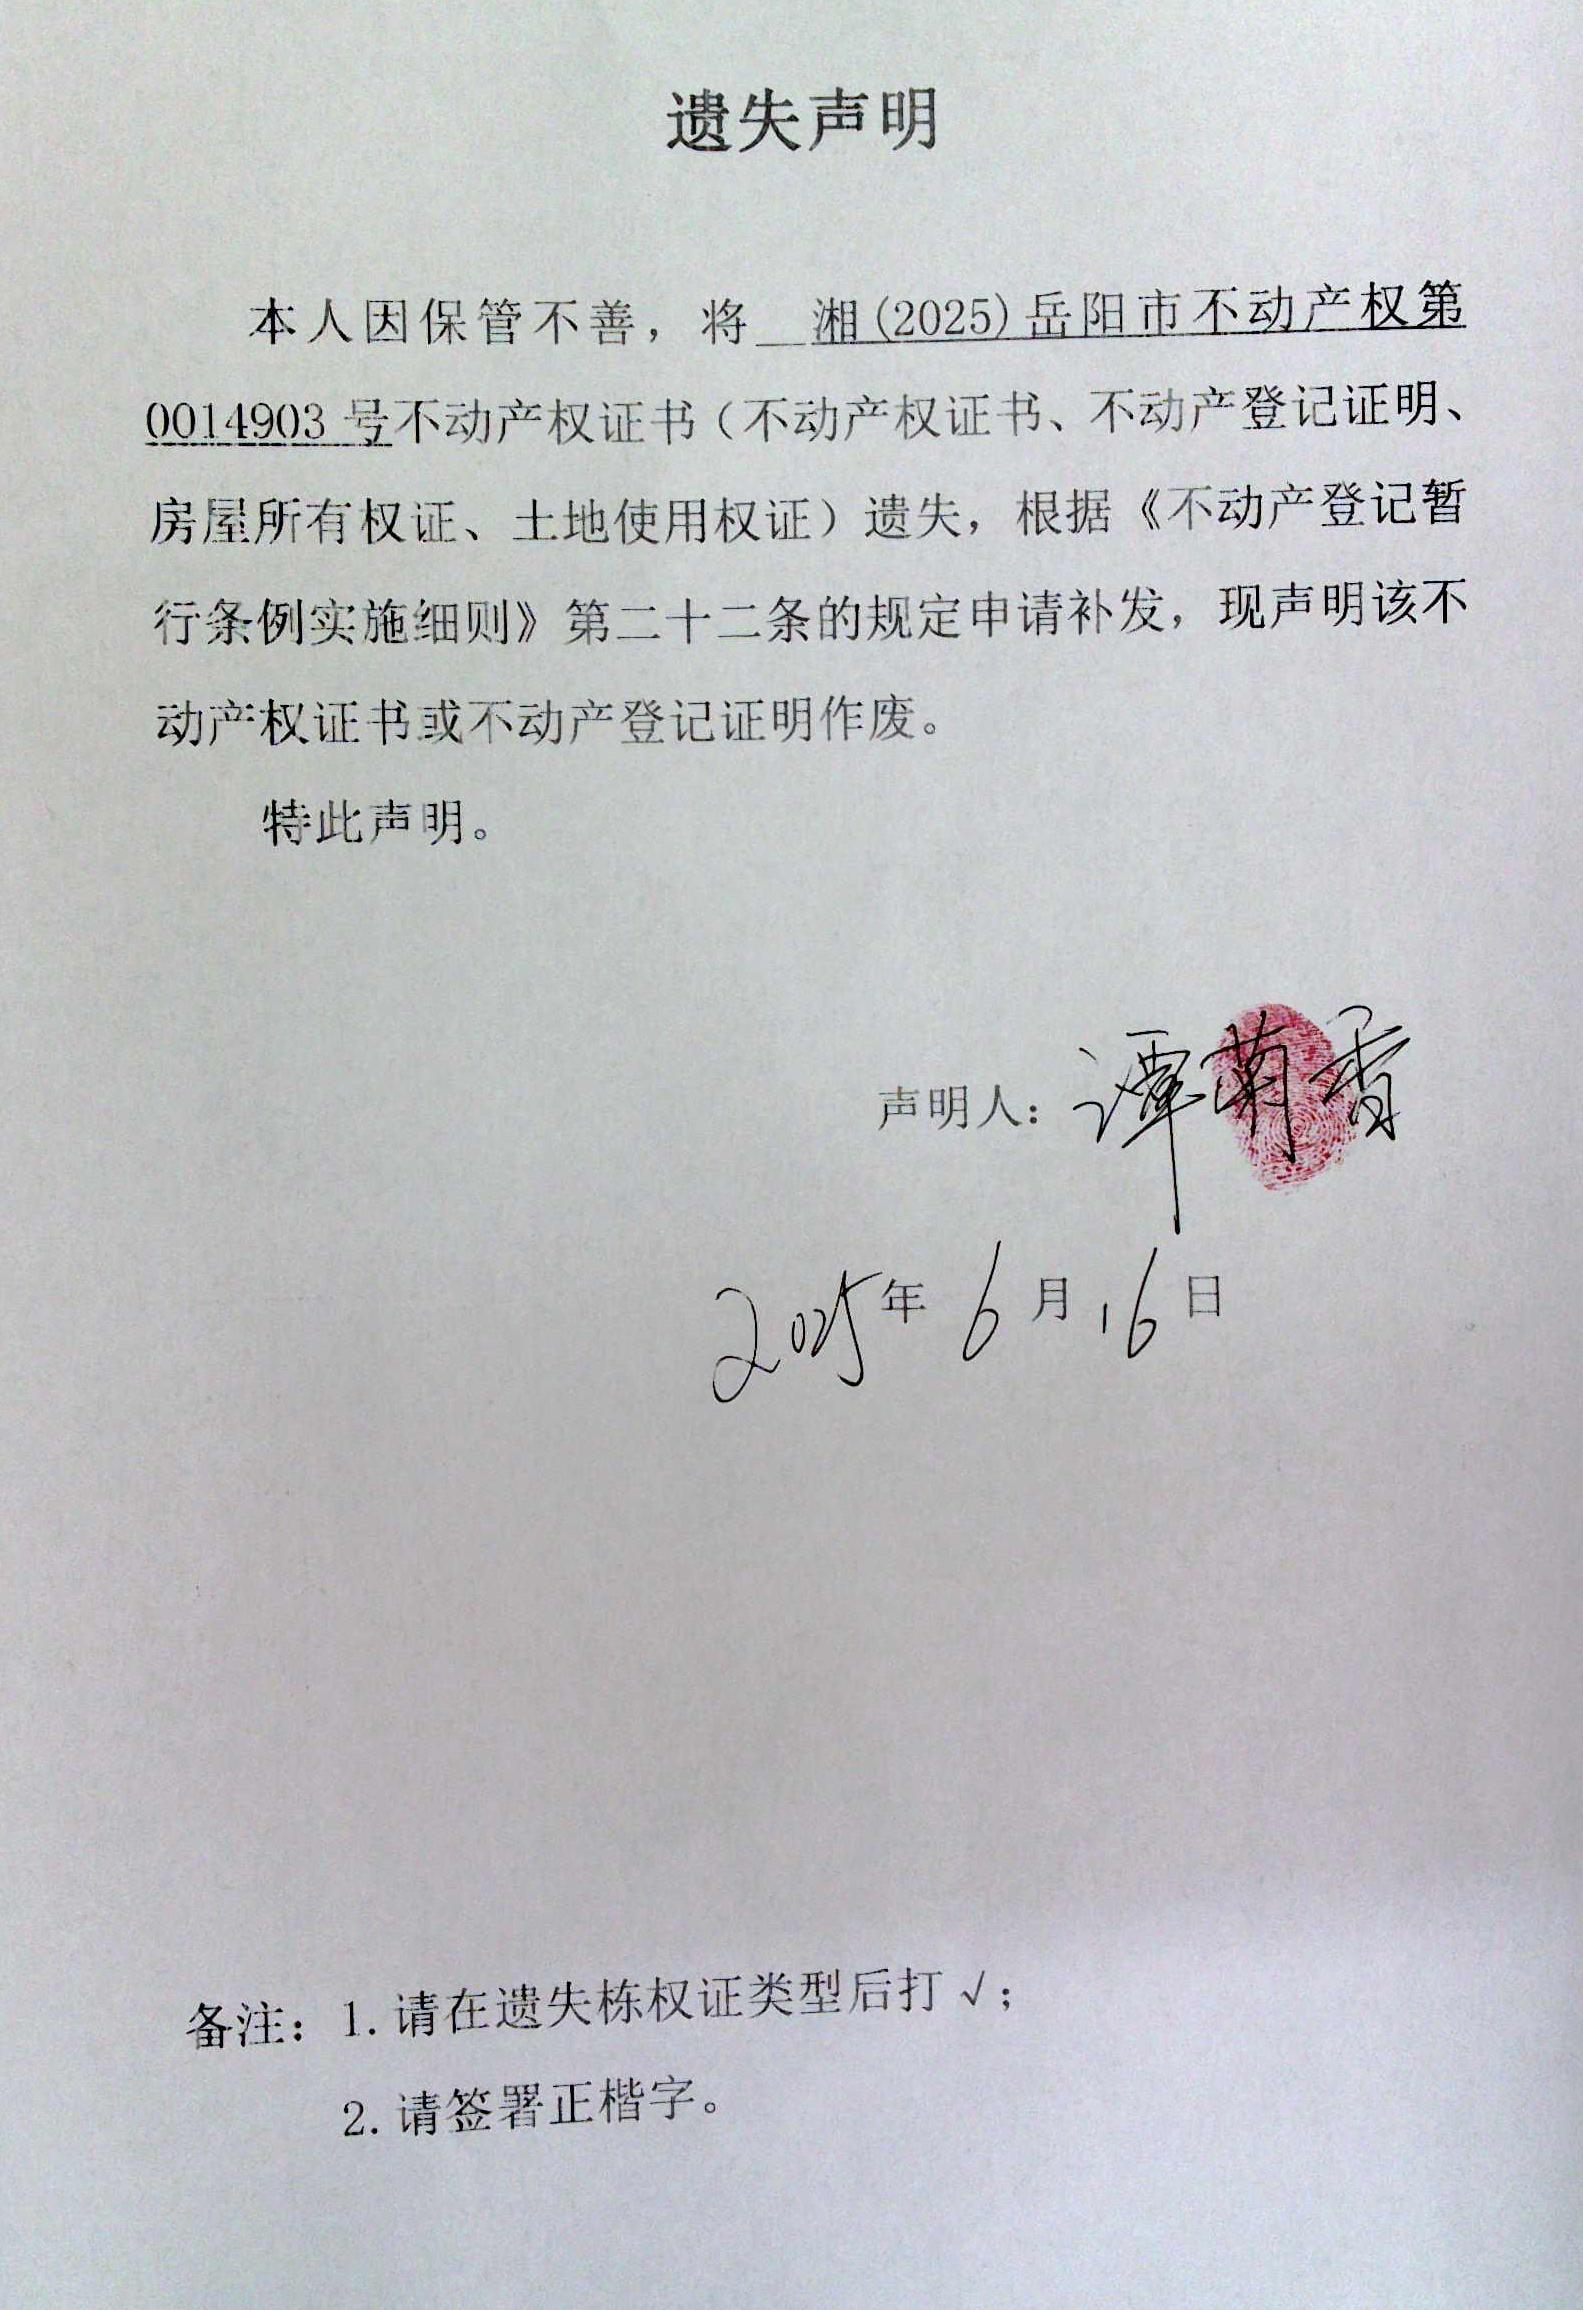 遗失声明
本人因保管不善，将 湘(2025)岳阳市不动产权第
0014903号不动产权证书（不动产权证书、不动产登记证明、
房屋所有权证、土地使用权证）遗失，根据《不动产登记暂
行条例实施细则》第二十二条的规定申请补发，现声明该不
动产权证书或不动产登记证明作废。
特此声明。
声明人：谭菊香
2025年6月16日
备注：1.请在遗失栋权证类型后打√；
2.请签署正楷字。